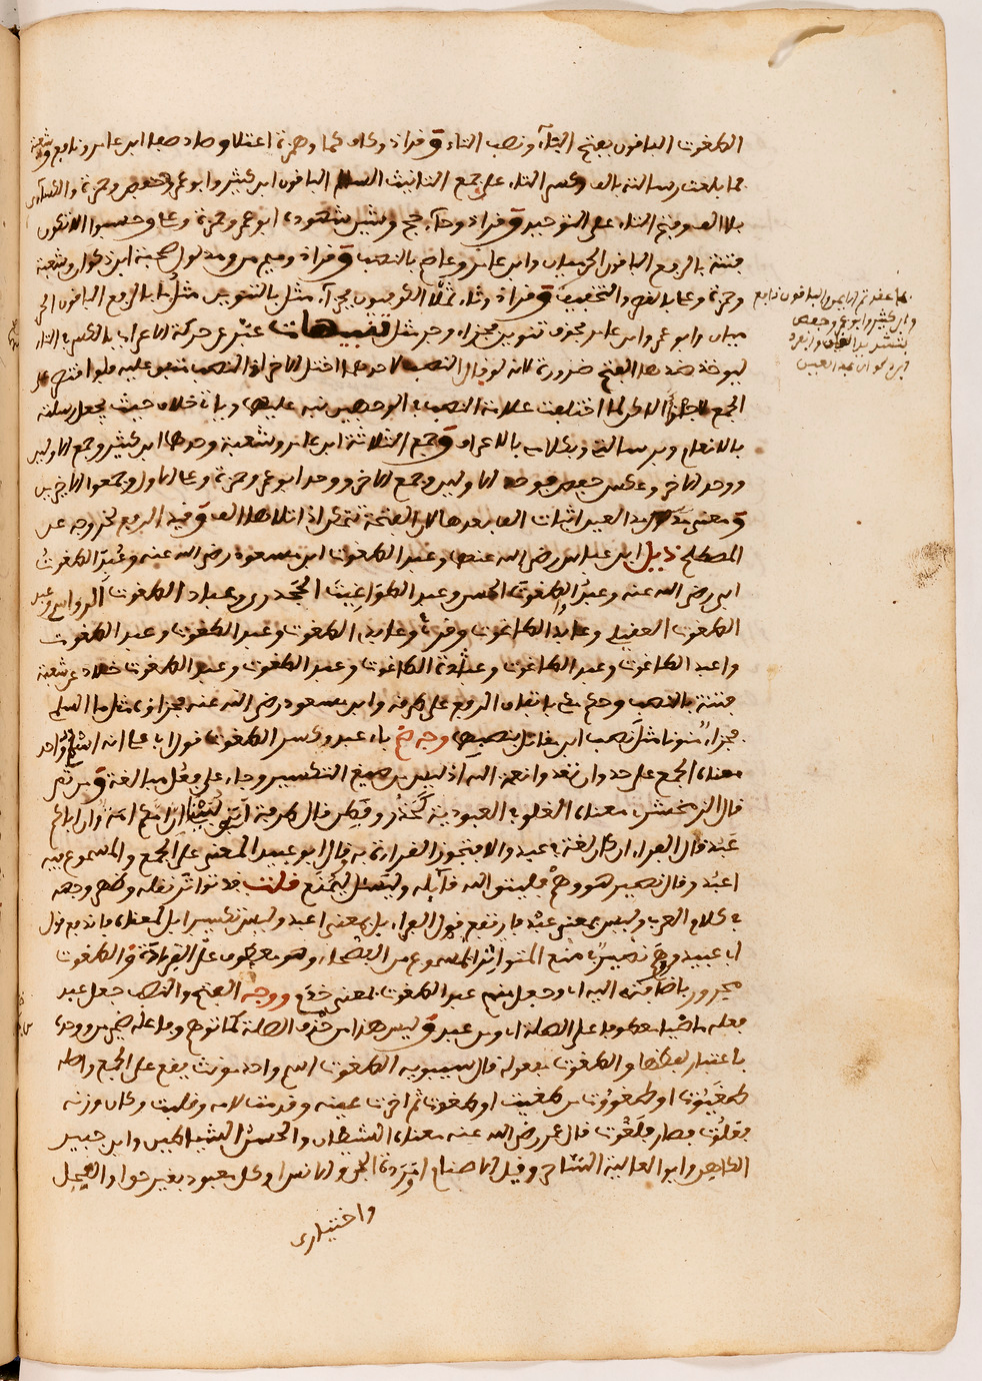 الطغوت الباقون بفتح الباء ونصب التاء وقرأ ذو كاف كما وهمزة اعتلا وصاد صفا ابن عامر ونافع وشعبة
فما بلغت رسالته بالف وكسر التاء على جمع التانيث السالم الباقون ابن كثير وابو عمرو وحفص وحمزة والكسائى
بلا الف وفتح التاء على التوحيد وقرأ ذو حاء حج وشين شهوده ابو عمرو وحمزة وعلى وحسبوا الا تكون
فتنة بالرفع الباقون الحرميان وابن عامر وعاصم بالنصب وقرأ ذو ميم من ومدلول صحبة ابن ذكوان وشعبة
وحمزة وعلى بالقصر والتخفيف وقرأ ذو ثاء ثملا الكوفيون فجزاء مثل بالتنوين مثل ما بالرفع الباقون الحر
ميان وابو عمرو وابن عامر بحذف تنوين فجزاء وجر مثل تنبيهات عبر عن حركة الاعراب بالكسر فى التاء
ليوخذ ضدها الفتح ضرورة لانه لو قال النصب لاخذ ضدها
الجمع لما اختلفت علامة النصب فى الوجهين نبه عليها وباء خلاف حيث يجعل رسالته
بالانعام وبرسالتى وبكلامى بالاعراف وجمع الثلاثة ابن عامر وشعبة ووحدها ابن كثير وجمع الاولين
ووحد الاخر وعكس حفص فوحد الاولين وجمع الاخر ووحد ابو عمرو وحمزة وعلى الاول وجمعوا الاخرين
ومعنى مد العين اثبات الف بعدها لان الفتحة تذكر اذا تلاها الف وقيد الرفع لخروجه عن
المصطلح ذيل ابن عباس رضى الله عنهما وعبد الطغوت ابن مسعود رضى الله عنه وعبد الطغوت
ابى رضى الله عنه وعبد الطغوت الحسن وعبد الطواغيت الجحدرى وعباد الطغوت الرواسى وعبد
الطغوت العقيلى وعابد الطاغوت وقرى وعابدى الطغوت وعبد الطغوت وعبد الطغوت
واعبد الطاغوت وعبد الطاغوت وعبدة الطاغوت وعبد الطغوت وعبد الطغوت خلاد عن شعبة
فتنة بالنصب وحكى غير باتفاق الرفع على طرفه وابن مسعود رضى الله عنه فجزاؤه مثل ما السلمى
فجزاء منونا مثل نصب ابن مقاتل بنصبهما وجه ضم باء عبد وكسر الطغوت قول ابى على انه اسم واحد
معناه الجمع على حد وان تعدوا نعمة الله اذ ليس من صيغ التكسير وجاء على فعل مبالغة ومن ثم
قال الزمخشرى معناه الغلو فى العبودية كحذر وفطن قال طرفة ابنى لبينى ان امكم امة وان اباكم
عبد قال الفراء ان كان لغة فى عبد والا فتجوز القراءة به وقال ابو عبيد المعنى على الجمع والمسموع فيه
اعبد وقال نصير هو وهم فليتق الله قائله وليسئل ليمنع قلت قد تواتر نقله وظهر وجهه
فى كلام العرب وليس بمعنى عبد فارتفع قول الفراء بل بمعنى اعبد وليس تكسيرا بل بمعناه فاندفع قول
ابى عبيد ووهم نصير منع المتواتر المسموع من الفصحاء وهو معطوف على القردة والطغوت
مجرور باضافته اليه اى وجعل منهم عبد الطغوت بمعنى خدم ووجه الفتح والنصب جعل عبد
فعلا ماضيا معطوفا على الصلة اى ومن عبد وليس هذا من حذف الصلة كما توهم وفاعله ضمير من ووحد
باعتبار لفظها والطغوت مفعوله قال سيبويه الطغوت اسم واحد مونث يقع على الجمع واصله
طغيوت او طغووت من طغيت او طغوت ثم اخرت عينه وقدمت لامه وقلبت وكان وزنه
فعلوت فصار فلعوت قال عمر رضى الله عنه معناه الشيطان والحسن الشياطين وابن جبير
الكاهن وابو العالية الساحر وقيل الاصنام او مردة الجن والانس او كل معبود بغير حق او العجل
واختيارى